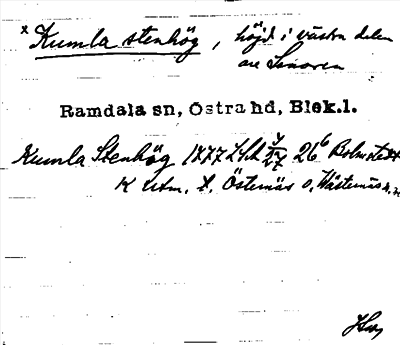 x Kumla stenhög, höjd i västra delen
av Senoren
Ramdala sn, Östra hd, Blek.l.
Kumla Stenhög 1777 26 Bolmstedt
K Utm. t. Östernäs o. Västernäs